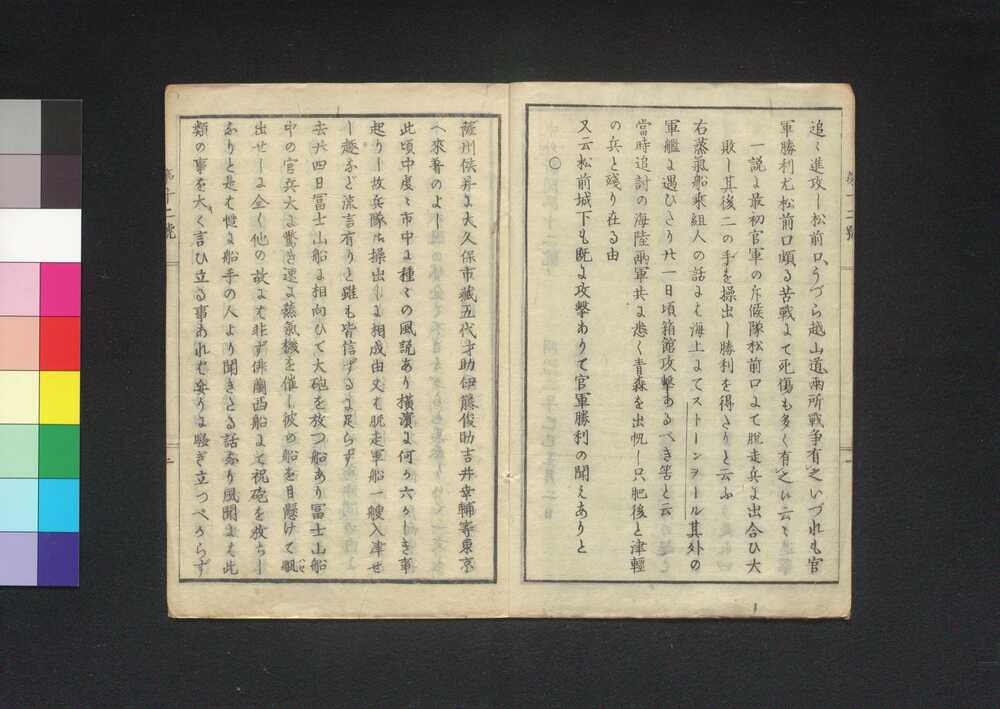 追〻進攻し松前口うづら越山道兩所戰爭有之いづれも官
軍勝利尤松前口頗る苦戰にて死傷も多く有之候云〻
一說に最初官軍の斥候隊松前口にて脫走兵に出合ひ大
敗し其後二の手を操出し勝利を得たりと云ふ
右蒸氣船乘組人の話にも海上にてストーンヲール其外の
軍艦に遇ひたり廿一日頃箱館攻擊あるべき筈と云
當時追討の海陸兩軍共に悉く靑森を出帆し只肥後と津輕
の兵と殘り在る由
○
又云松前城下も既に攻擊ありて官軍勝利の聞えありと
薩州侯幷に大久保市藏五代才助伊藤俊助吉井幸輔等東京
へ來着のよし
此頃中度〻市中に種〻の風說あり橫濱に何か六かしき事
起りし故兵隊御操出しに相成由又も脫走軍船一艘入津せ
し趣など流言有りと雖も皆信ずるに足らず
去廿四日富士山船に相向ひて大砲を放つ船あり富士山船
中の官兵大に驚き速に蒸氣機を催し彼の船を目懸けて
出せしに全く他の故にも非ず佛蘭西船にて祝砲を放ちし
なりと是も慥に船手の人より聞きたる話なり風聞にも此
類の事を大く言ひ立る事あれども妄りに騷ぎ立つべからず
第十二號
二
第十二號
一